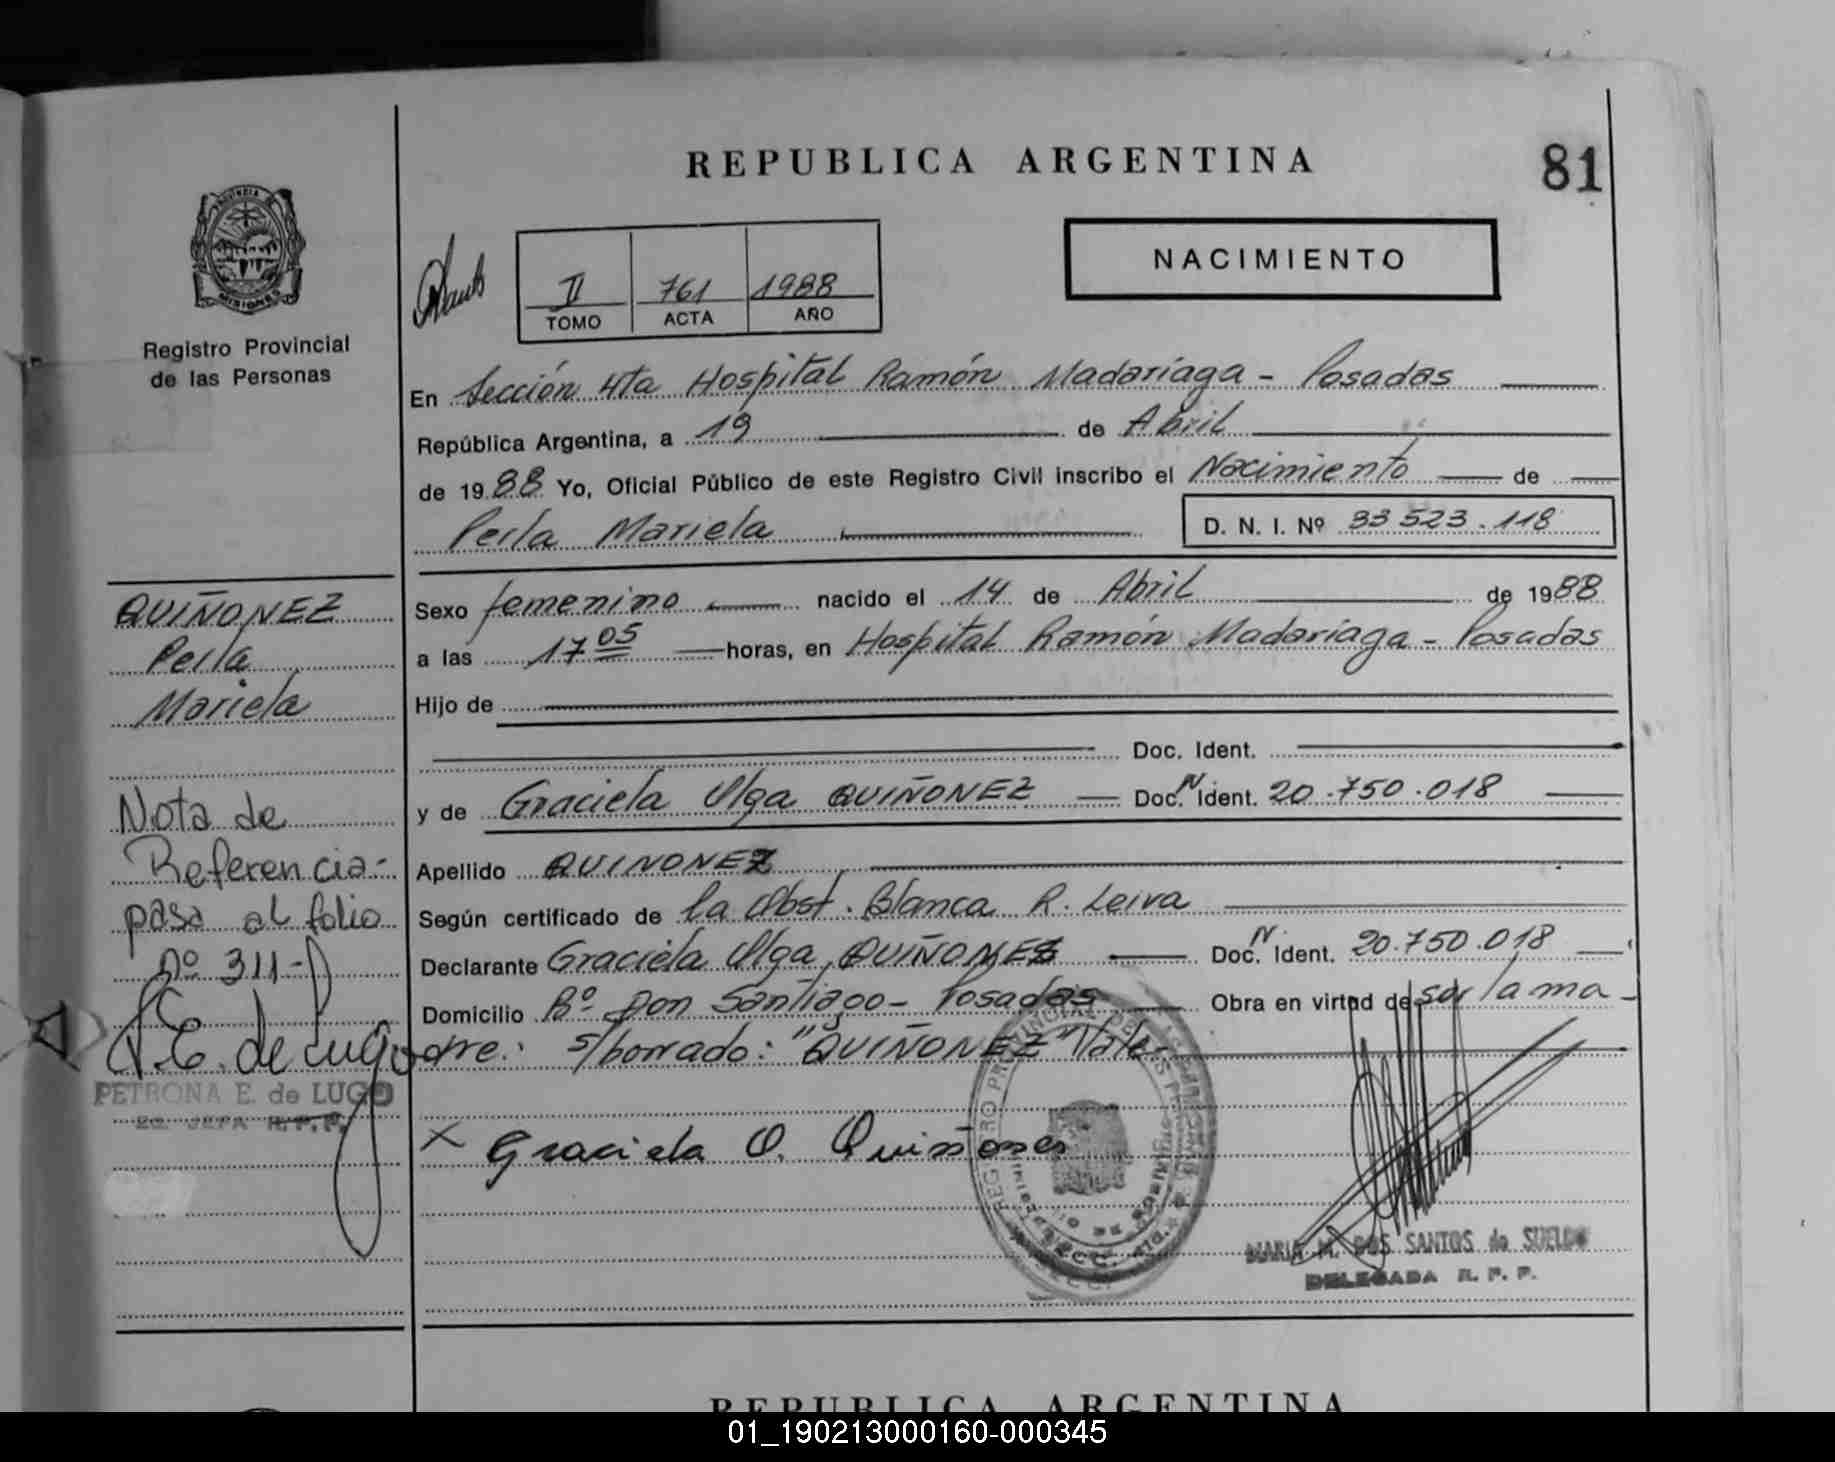 REPUBLICA ARGENTINA
81
PROVINCIA DE
MISIONES
Registro Provincial
de las Personas
II 761 1988
TOMO ACTA AÑO
NACIMIENTO
En Sección 4ta Hospital Ramón Madariaga - Posadas
República Argentina, a 19 de Abril
de 1988 Yo, Oficial Público de este Registro Civil inscribo el Nacimiento de
Perla Mariela D. N. I. Nº 33 523.118
QUIÑONEZ
Perla
Mariela
Sexo femenino nacido el 14 de Abril de 1988
a las 17 05 horas, en Hospital Ramón Madariaga - Posadas
Hijo de
Doc. Ident.
y de Graciela Olga QUIÑONEZ Doc. N Ident. 20.750.018
Apellido QUINONEZ
Según certificado de la Obst. Blanca R. Leiva
Declarante Graciela Olga QUIÑONEZ Doc. N. Ident. 20.750.018
Domicilio Bº Don Santiago - Posadas Obra en virtud de ser la ma-
dre.: s/borrado: "QUIÑONEZ" Vale.
Nota de
Referencia:
pasa al folio
nº 311-
P.E. de Lugo
PETRONA E. de LUGO
JEFA R.P.P.
x Graciela O. Quiñones
REGISTRO PROVINCIAL DE LAS PERSONAS
MARIA M. DOS SANTOS de SUELDO
DELEGADA R. P. P.
REPUBLICA ARGENTINA
01_190213000160-000345